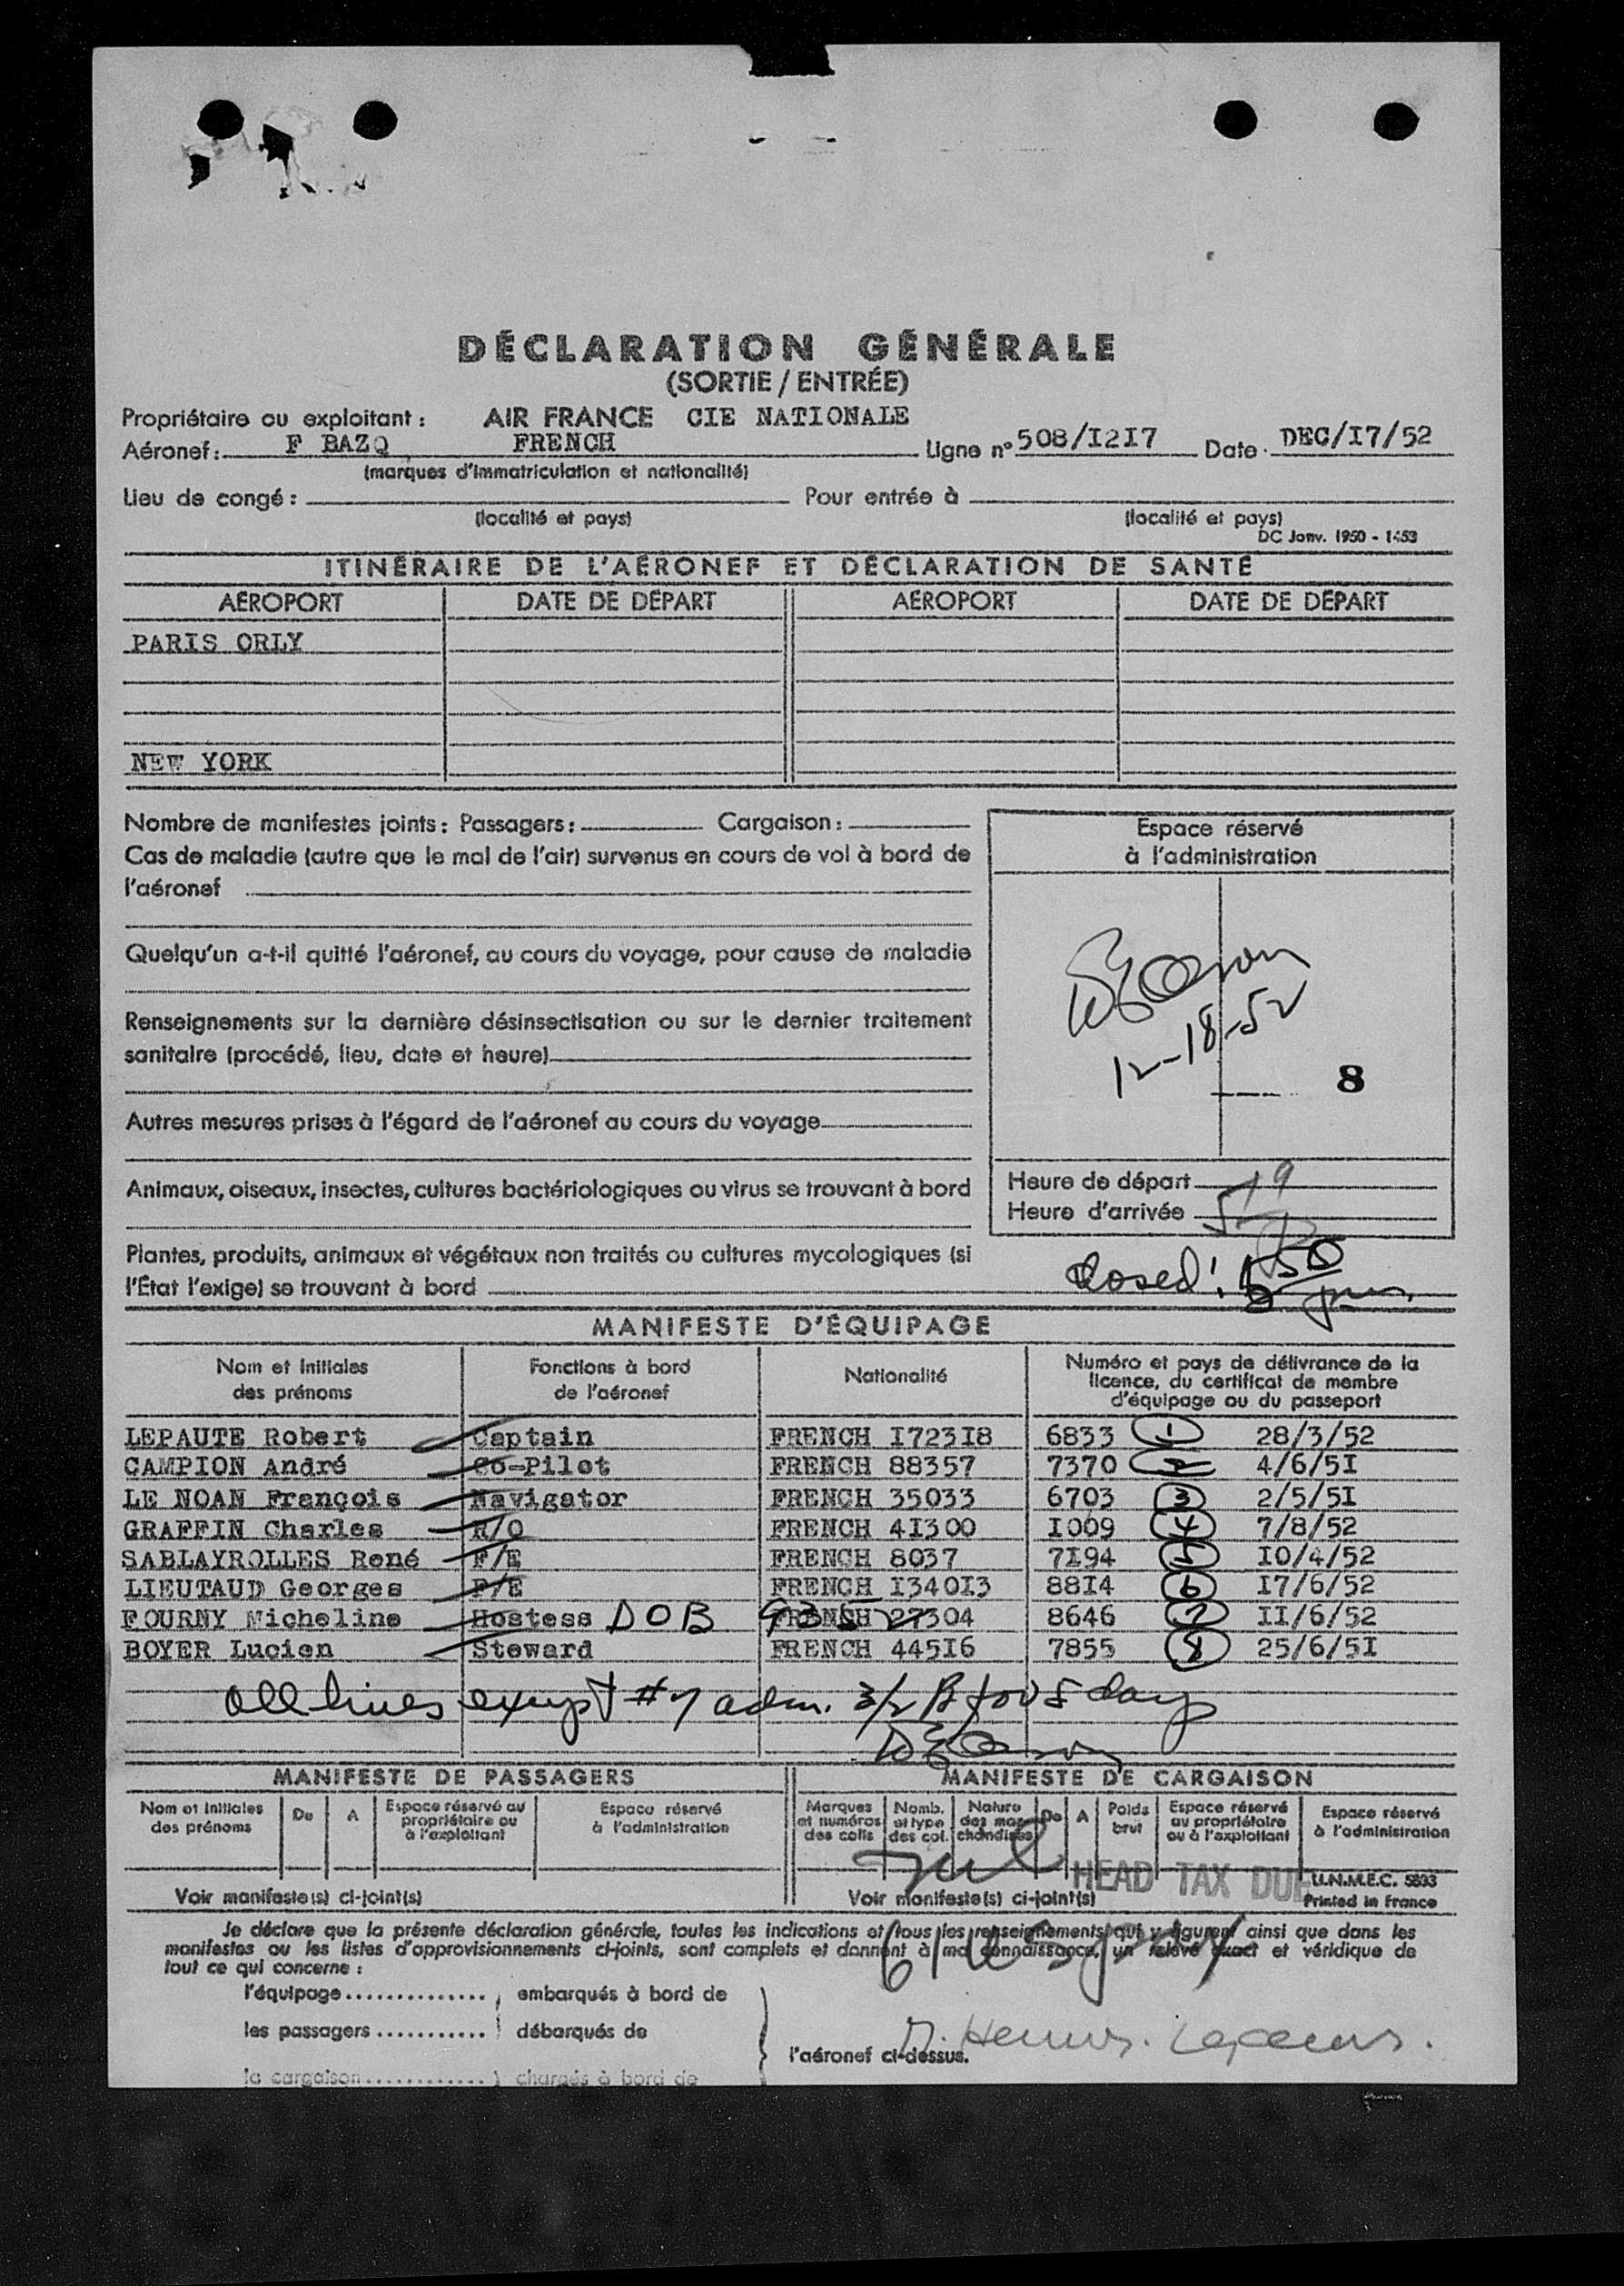 DÉCLARATION GÉNÉRALE
(SORTIE / ENTRÉE)
Propriétaire ou exploitant : AIR FRANCE CIE NATIONALE
Aéronef : F BAZQ FRENCH Ligne n° 508/I2I7 Date DEC/I7/52
(marques d'immatriculation et nationalité)
Lieu de congé : Pour entrée à
(localité et pays) (localité et pays)
DC Janv. 1950 - 1453
ITINÉRAIRE DE L'AÉRONEF ET DÉCLARATION DE SANTÉ
AÉROPORT DATE DE DÉPART AÉROPORT DATE DE DÉPART
PARIS ORLY
NEW YORK
Nombre de manifestes joints : Passagers : Cargaison :
Cas de maladie (autre que le mal de l'air) survenus en cours de vol à bord de
l'aéronef
Quelqu'un a-t-il quitté l'aéronef, au cours du voyage, pour cause de maladie
Renseignements sur la dernière désinsectisation ou sur le dernier traitement
sanitaire (procédé, lieu, date et heure)
Autres mesures prises à l'égard de l'aéronef au cours du voyage
Animaux, oiseaux, insectes, cultures bactériologiques ou virus se trouvant à bord
Plantes, produits, animaux et végétaux non traités ou cultures mycologiques (si
l'État l'exige) se trouvant à bord
Espace réservé
à l'administration
12-18-52
8
Heure de départ
Heure d'arrivée
Closed!
MANIFESTE D'ÉQUIPAGE
Nom et Initiales des prénoms Fonctions à bord de l'aéronef Nationalité Numéro et pays de délivrance de la licence, du certificat de membre d'équipage ou du passeport
LEPAUTE Robert Captain FRENCH I723I8 6833 1 28/3/52
CAMPION André Co-Pilot FRENCH 88357 7370 2 4/6/5I
LE NOAN François Navigator FRENCH 35033 6703 3 2/5/5I
GRAFFIN Charles R/O FRENCH 4I300 I009 4 7/8/52
SABLAYROLLES René F/E FRENCH 8037 7I94 5 I0/4/52
LIEUTAUD Georges F/E FRENCH I340I3 88I4 6 I7/6/52
FOURNY Micheline Hostess DOB FRENCH 27304 8646 7 II/6/52
BOYER Lucien Steward FRENCH 445I6 7855 8 25/6/5I
all lines except #7 adm. 3/2 B for 5 days
MANIFESTE DE PASSAGERS MANIFESTE DE CARGAISON
Nom et Initiales des prénoms De A Espace réservé au propriétaire ou à l'exploitant Espace réservé à l'administration
Marques et numéros des colis Nomb. et type des col. Nature des marchandises De A Poids brut Espace réservé au propriétaire ou à l'exploitant Espace réservé à l'administration
HEAD TAX DUE
U.N.M.E.C. 5833
Voir manifeste(s) ci-joint(s) Voir manifeste(s) ci-joint(s) Printed in France
Je déclare que la présente déclaration générale, toutes les indications et tous les renseignements qui y figurent ainsi que dans les
manifestes ou les listes d'approvisionnements ci-joints, sont complets et donnent à ma connaissance, un relevé exact et véridique de
tout ce qui concerne :
l'équipage embarqués à bord de
les passagers débarqués de
l'aéronef ci-dessus.
la cargaison chargés à bord de